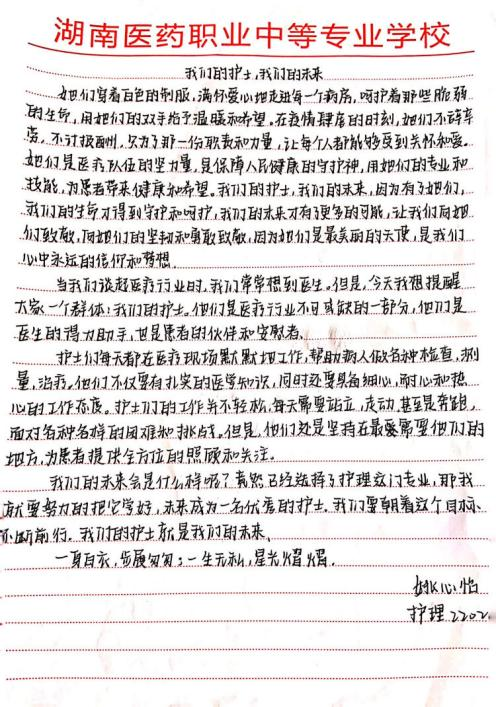 湖南医药职业中等专业学校
我们的护士，我们的未来
她们穿着白色的制服，满怀爱心地走进每一个病房，呵护着那些脆弱
的生命，用她们的双手给予温暖和希望。在疫情肆虐的时刻，她们不辞辛
劳，不讨报酬，只为了那一份职责和力量，让每个人都能够受到关怀和爱。
她们是医疗队伍的坚力量，是保障人民健康的守护神，用她们的专业和
技能，为患者带来健康和希望。我们的护士，我们的未来，因为有了她们，
我们的生命才得到守护和呵护，我们的未来才有了更多的可能，让我们向她
们致敬，向她们的坚韧和勇敢致敬，因为她们是最美丽的天使，是我们
心中永远的信仰和梦想.
当我们谈起医疗行业时，我们常常想到医生。但是，今天我想提醒
大家一个群体：我们的护士。他们是医疗行业不可或缺的一部分，他们是
医生的得力助手，也是患者的伙伴和安慰者。
护士们每天都在医疗现场默默地工作，帮助病人做各种检查，测
量，治疗。他们不仅要有扎实的医学知识，同时还要具备细心，耐心和热
心的工作态度。护士们的工作并不轻松，每天需要站立，走动，甚至是奔跑，
面对各种各样的困难和挑战。但是，他们还是坚持在最要需要他们的
地方，为患者提供全方位的照顾和关注。
我们的未来会是什么样呢？竟然已经选择了护理这门专业，那我
就要努力的把它学好，未来成为一名优秀的护士。我们要朝着这个目标
不断前行。我们的护士就是我们的未来.
一身白衣，步履匆匆；一生无私，星光熠熠.
心怡
护理2202